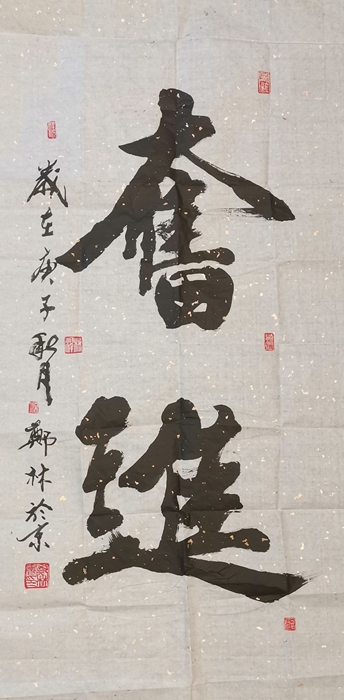 奮進
歲在庚子秋月鄭林於京